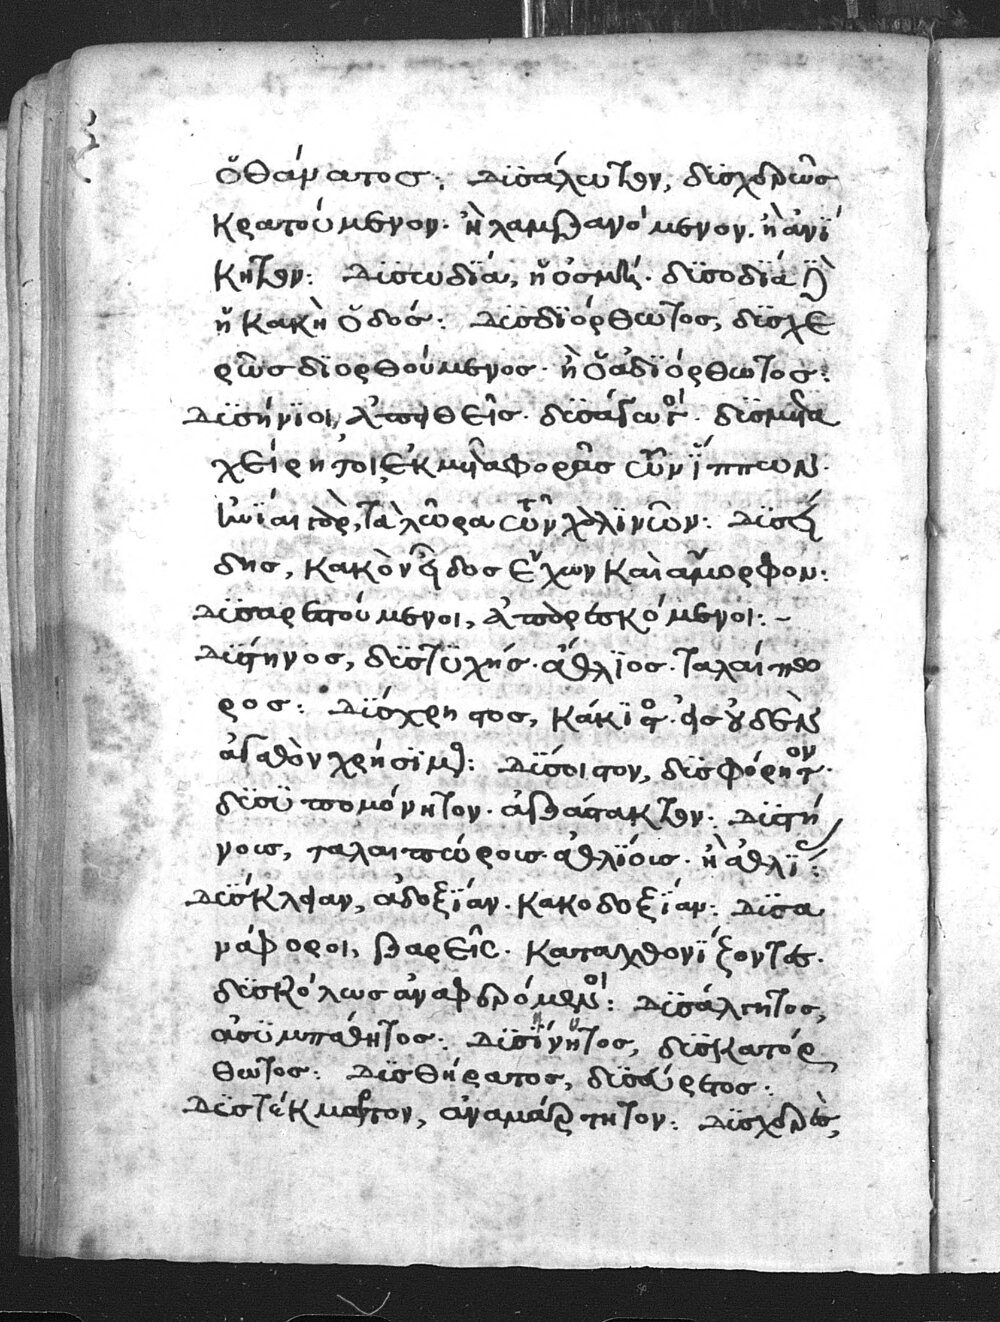 ὁ θάνατος: Δϊσάλωτον, δϊσχολῶς
κρατούμενον· ἢ λαμβανόμενον. ἢ ἀνϊ
κητον: Δϊσευδΐα, ἡ ὀσμὴ· δϊσοδΐα δὲ
ἡ κακὴ ὁδός: Δϊσδϊόρθωτος, δϊσχε
ρῶς δϊορθούμενος· ἢ ὁ ἀδϊόρθωτος:
Δϊσήνϊοι, ἀπηθεῖς· δϊσάγωγοι· δϊσμετα
χείρητοι, ἐκ μεταφορᾶς τῶν ΐππων·
δησ, κακὸν εἶδος ἔχων καὶ ἄμορφον:
Δϊσαρεστούμενοι, ἀπαρεσκόμενοι:~
Δΰστηνος, δϊστϋχής· άθλϊος· ταλαίπω
ρος: Δΰσχρηστος, κάκϊστος· εἰς οὐδὲν
ἀγαθὸν χρήσϊμος: Δΰσοιστον, δϊσφόρητον·
δϊσϋπομόνητον· ἀβάστακτον: Δϊστή
νοις, ταλαιπώροις· ἀθλΐοις· ἢ ἀθλΐως:
Δΰσκλειαν, ἀδοξΐαν· κακοδοξΐαν: Δϊσα
νάφοροι, βαρεῖς· καταχθονΐζοντες·
δϊσκόλως ἀναφερόμενοι: Δϊσάλγητος,
ἀσϋμπάθητος: Δϊσήνητος, δϊσκατόρ
θωτος: Δϊσθήρατος, δϊσεύρετος:
Δϊστέκμαρτον, ἀναμάρτητον: Δϊσχερὲς,